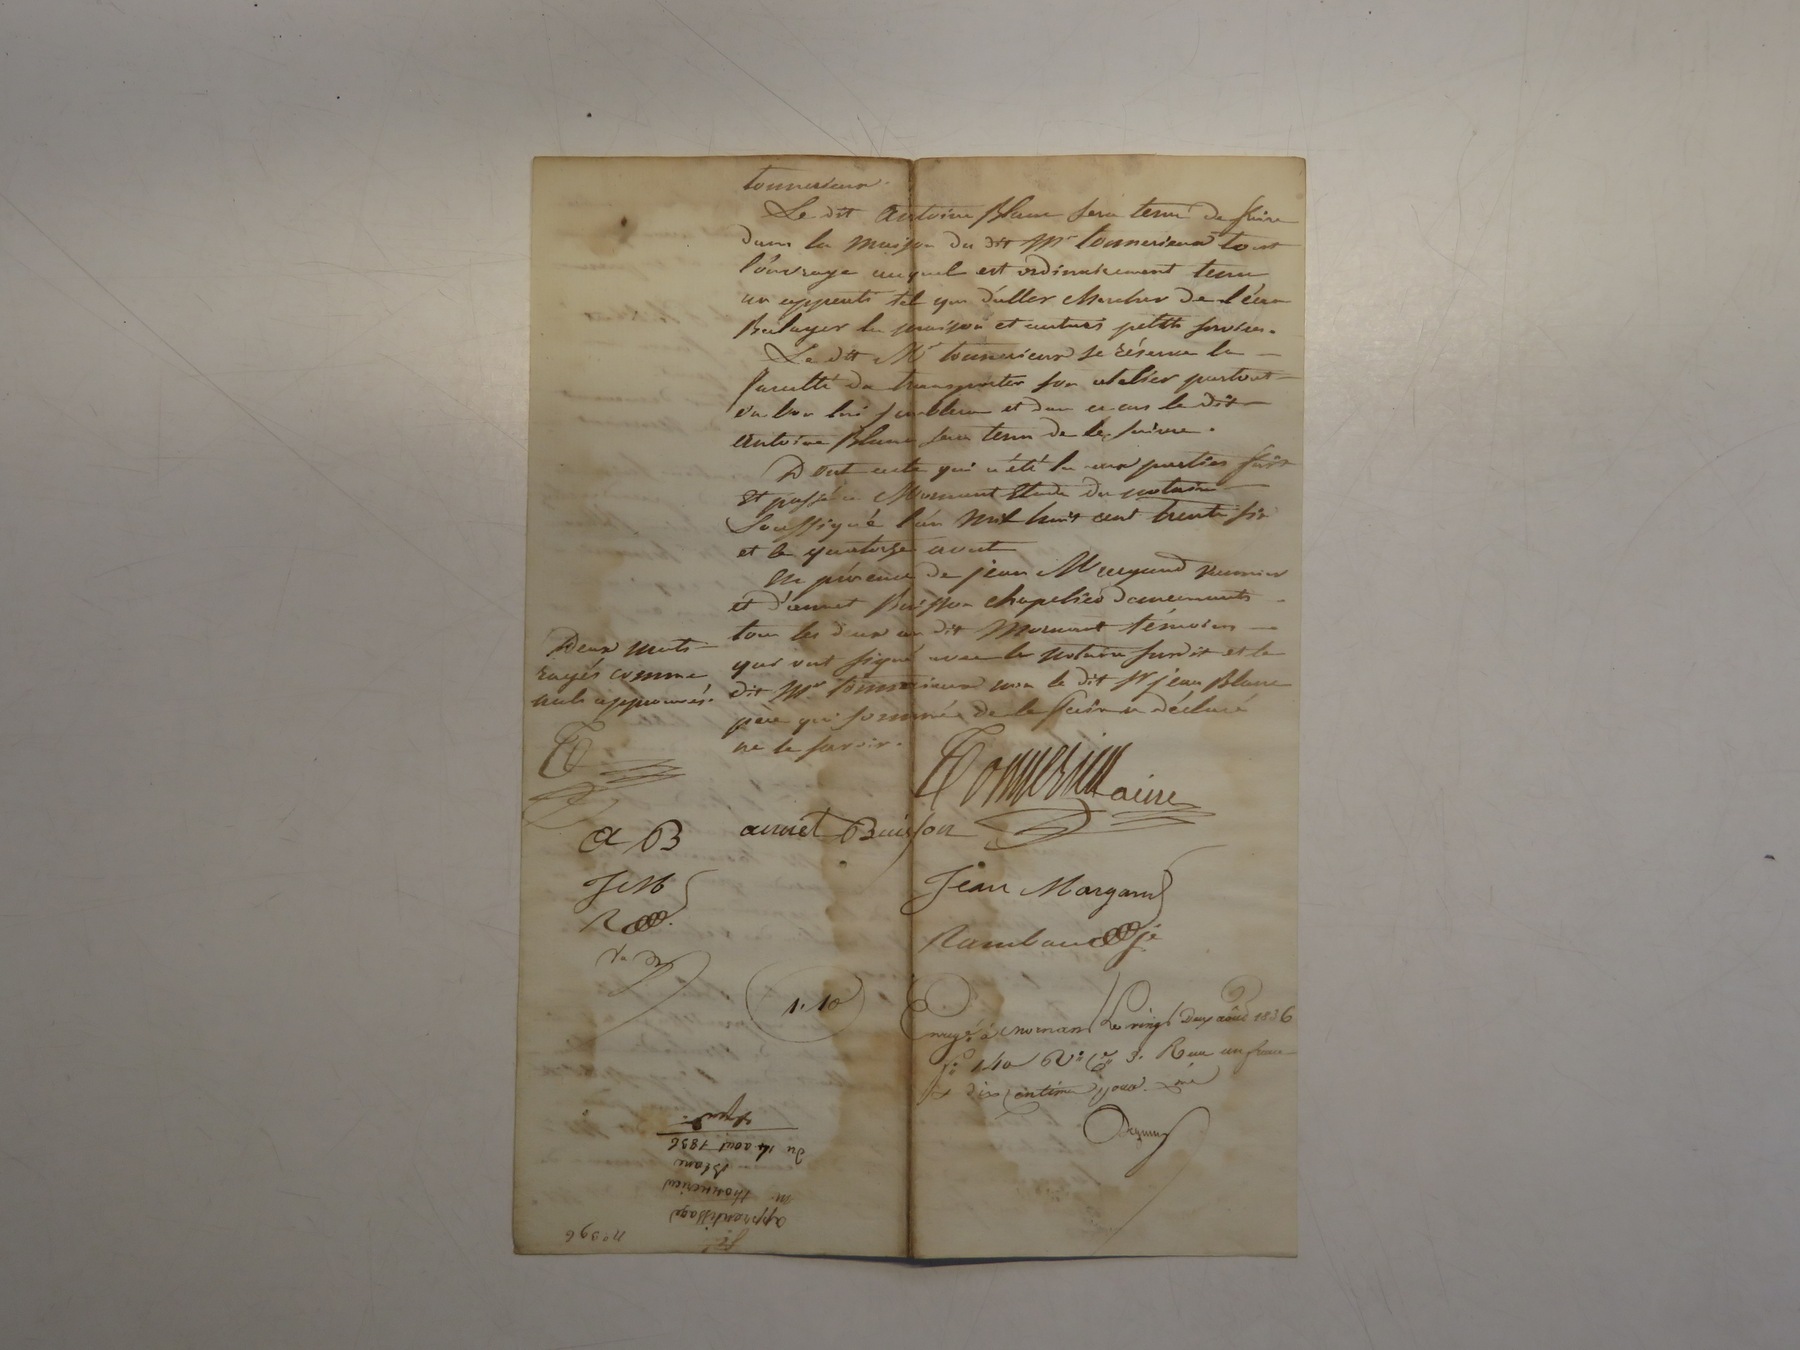 tonnerieux.
Le dit Antoine Blanc sera tenu de faire
dans la maison du dit Mr tonnerieux tout
l'ouvrage auquel est ordinairement tenu
un apprenti tel que d'aller chercher de l'eau
Balayer la maison et autres petits services.
Le dit Mr tonnerieux se réserve la
faculté de transporter son atelier partout
ou bon lui semblera et dans ce cas le dit
antoine Blanc sera tenu de le suivre.
Dont acte qui a été lu aux parties fait
et passé a Mornant Etude du notaire
Soussigné l'an Mil huit cent trente six
et le quatorze aout
En présence de jean Margand
et d'annet Buisson chapelier demeurants
tous les deux au dit Mornant témoins
qui ont signé avec le notaire susdit et le
dit Mr tonnerieux non le dit Sr jean Blanc
père qui sommé de le faire a déclaré
ne le savoir.
Deux mots
rayés comme
nuls approuvés.
T
Tonnerieux ainé
A B annet Buisson
J M
Jean Margand
R
Rambaud
1.10
Enregé à Mornant Le vingt Deux août 1836
fo 140 Vo Ce 3. Reçu un franc
et dix centimes
no 396
apprentissage
Mr thonnerieux
Blanc
du 14 aout 1836